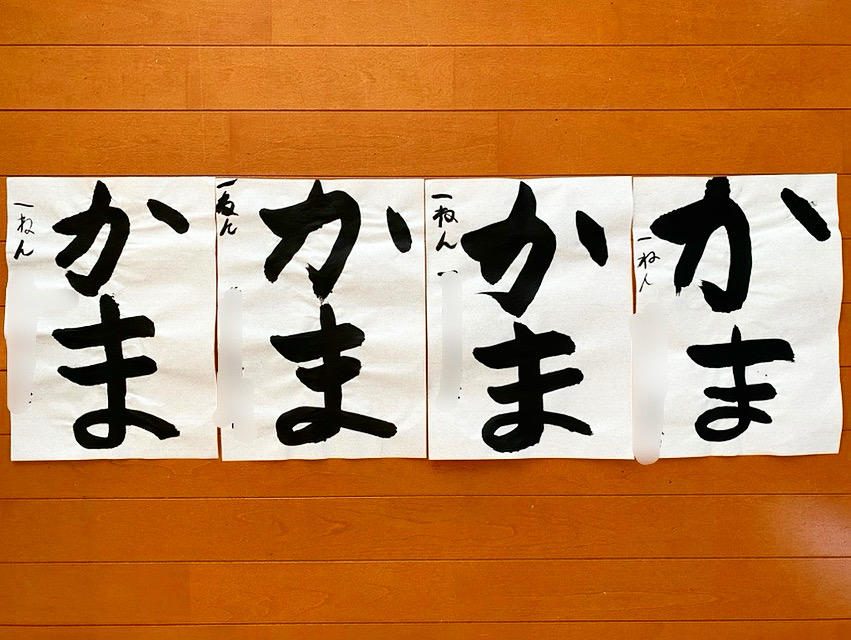 かま
一ねん
かま
一ねん
かま
一ねん
かま
一ねん